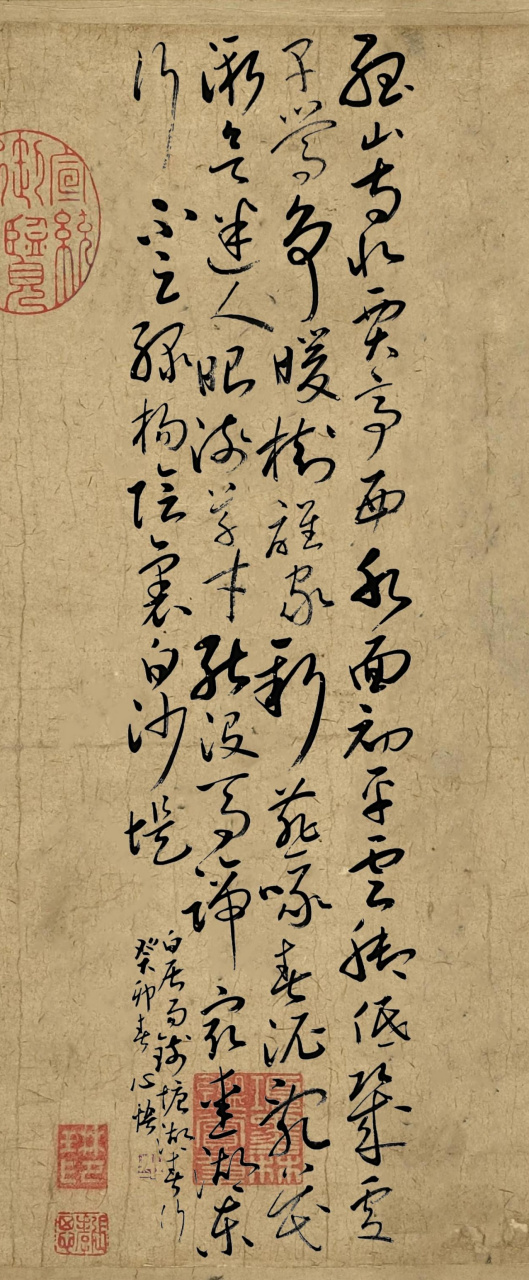 孤山寺北賈亭西水面初平雲腳低幾處
早鶯爭暖樹誰家新燕啄春泥亂花
漸欲迷人眼淺草才能沒馬蹄最愛湖東
行不足綠楊陰裏白沙堤
白居易錢塘湖春行
癸卯春心悟
宣統
御覽